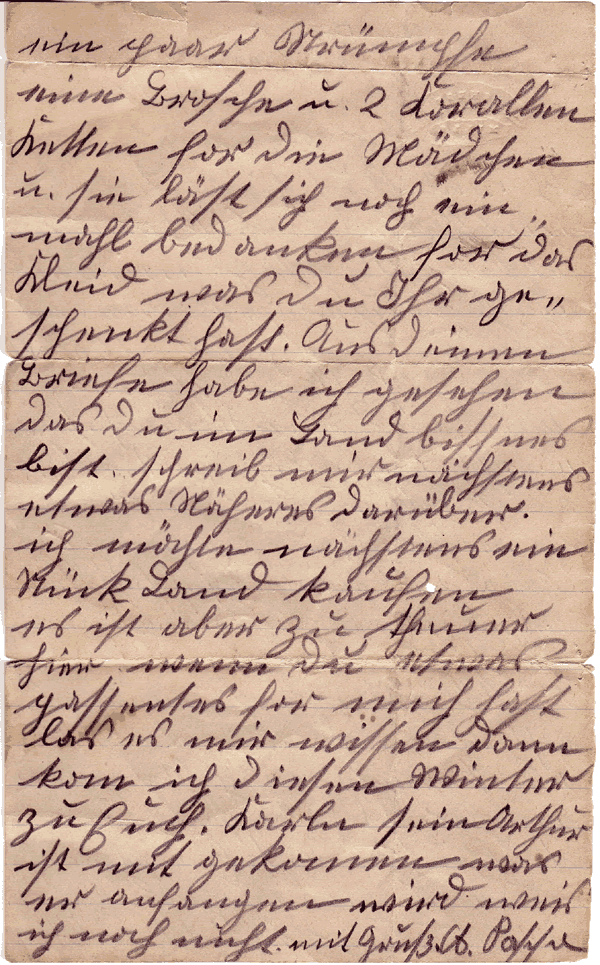 ein paar Strümpfe
eine Brosche u. 2 Korallen
Ketten for die Mädchen
u. sie läst sich noch ein„
mahl bedanken for das
Kleid was du Ihr ge„
schenkt hast. Aus deinen
Briefe habe ich gesehen
das du im Land bissnes
bist. schreib mir nächstens
etwas Näheres darüber.
ich möchte nächstens ein
Stück Land kaufen
es ist aber zu theuer
hier wenn du etwas
passentes for mich hast
las es mir wissen dann
kom ich diesen Winter
zu Euch. Karln sein Arthur
ist mit gekomen was
er anfangen wird weis
ich noch nicht. mit Gruß